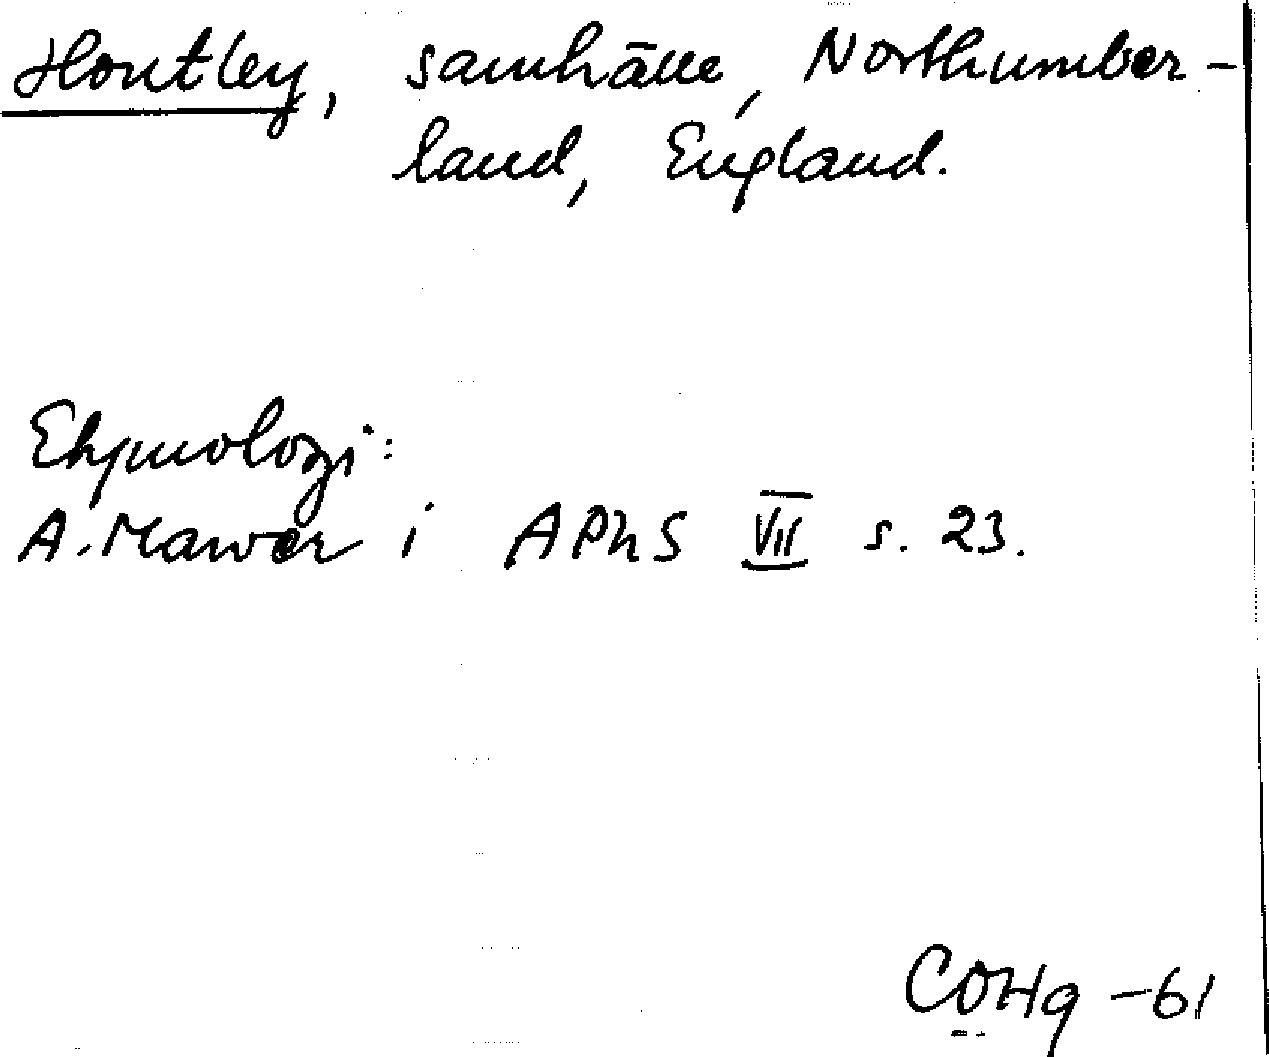 Houtley, samhälle, Northumber-
land, England.
Etymologi:
A. Mawer i APhS VII s. 23.
COHg -61